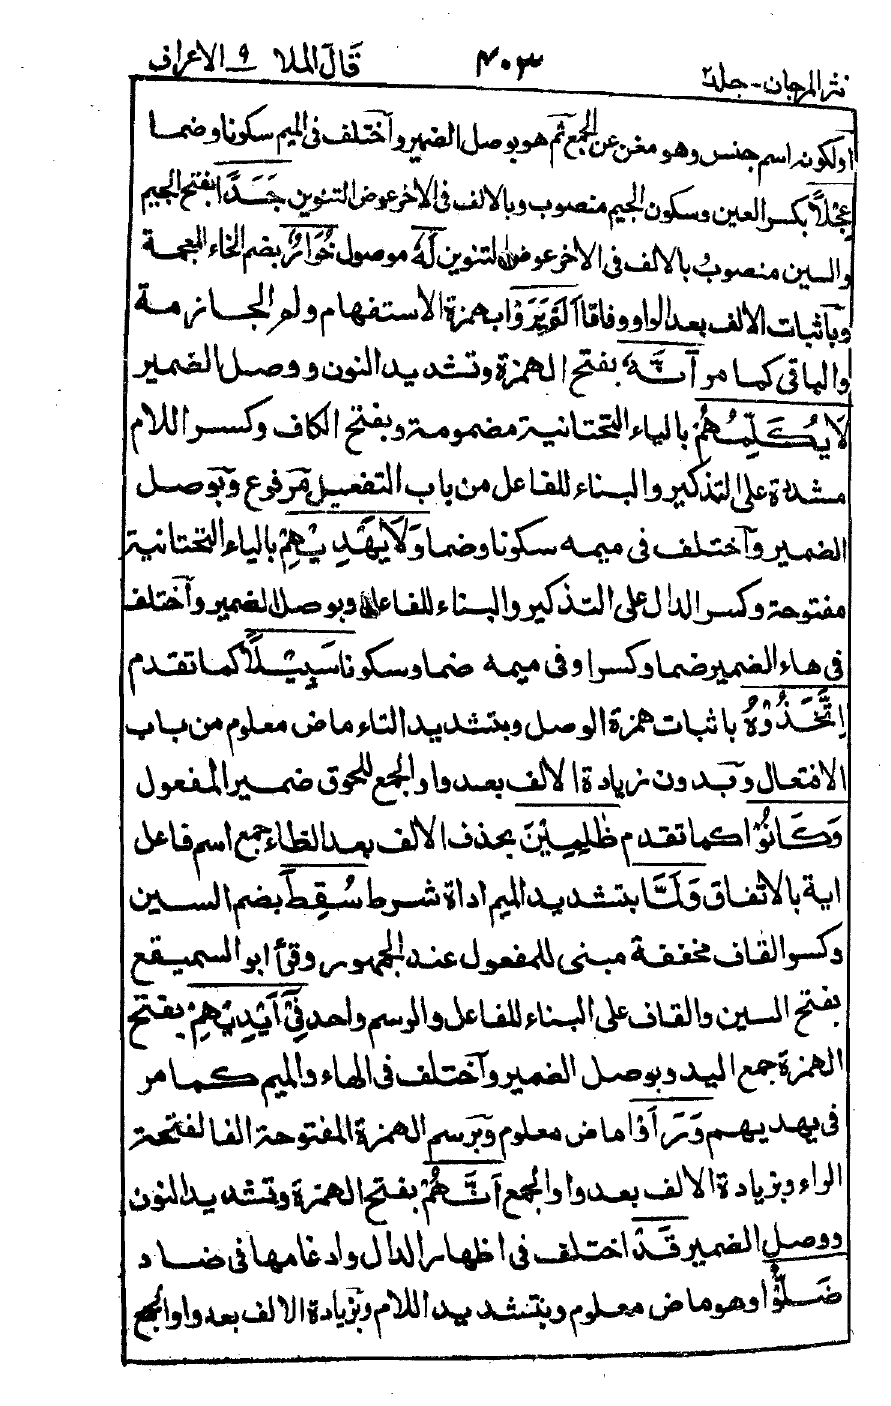 نثر المرجان - جلد٢ ٤٠٣ قَالَ الملا ٩ الاعراف
او لكونه اسم جنس وهو مغن عن الجمع ثم هو بوصل الضمير واختلف فى الميم سكونا وضما
عِجْلًا بكسر العين وسكون الجيم منصوب وبالالف فى الاخر عوض التنوين جَسَدًا بفتح الجيم
والسين منصوب بالالف فى الاخر عوض التنوين لَهٗ موصول خُوَارٌ بضم الخاء المعجمة
وباثبات الالف بعد الواو وفاقا اَلَمْ يَرَوْا بهمزة الاستفهام ولم الجازمة
والباقى كما مر اَنَّهٗ بفتح الهمزة وتشديد النون ووصل الضمير
لَا يُكَلِّمُهُمْ بالياء التحتانية مضمومة وبفتح الكاف وكسر اللام
مشددة على التذكير والبناء للفاعل من باب التفعيل مرفوع وبوصل
الضمير واختلف فى ميمه سكونا وضما وَلَا يَهْدِيْهِمْ بالياء التحتانية
مفتوحة وكسر الدال على التذكير والبناء للفاعل وبوصل الضمير واختلف
فى هاء الضمير ضما وكسرا وفى ميمه ضما وسكونا سَبِيْلًا كما تقدم
اِتَّخَذُوْهُ باثبات همزة الوصل وبتشديد التاء ماض معلوم من باب
الافتعال وبدون زيادة الالف بعد واو الجمع للحوق ضمير المفعول
وَكَانُوْا كما تقدم ظٰلِمِيْنَ بحذف الالف بعد الظاء جمع اسم فاعل
اية بالاتفاق وَلَمَّا بتشديد الميم اداة شرط سُقِطَ بضم السين
وكسر القاف مخففة مبنى للمفعول عند الجمهور وقرأ ابو السميقع
بفتح السين والقاف على البناء للفاعل والرسم واحد فِىْٓ اَيْدِيْهِمْ بفتح
الهمزة جمع اليد وبوصل الضمير واختلف فى الهاء والميم كما مر
فى يهديهم وَرَاَوْا ماض معلوم وبرسم الهمزة المفتوحة الفا لفتحة
الراء وبزيادة الالف بعد واو الجمع اَنَّهُمْ بفتح الهمزة وتشديد النون
ووصل الضمير قَدْ اختلف فى اظهار الدال وادغامها فى ضاد
ضَلُّوْا وهو ماض معلوم وبتشديد اللام وبزيادة الالف بعد واو الجمع